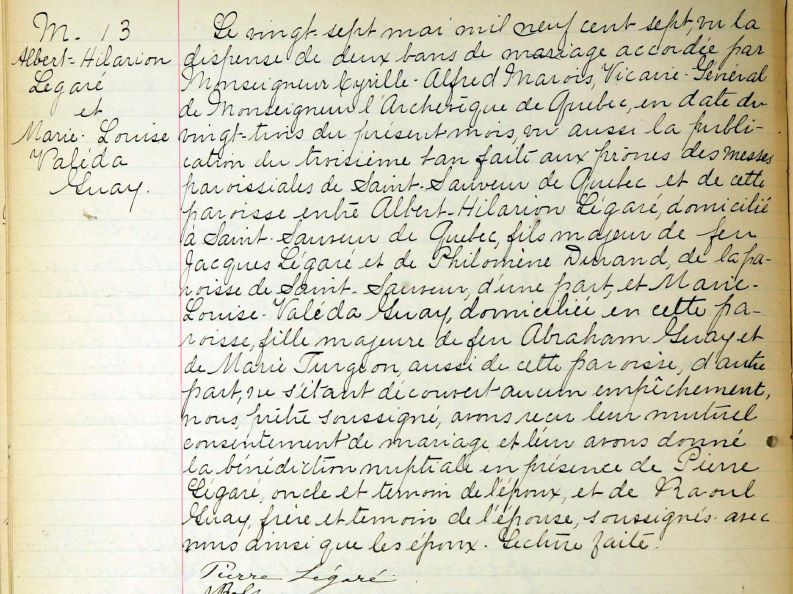 M. 13
Albert-Hilarion
Légaré
et
Marie-Louise
Valéda
Guay.
Le vingt-sept mai mil neuf cent sept, vu la
dispense de deux bans de mariage accordée par
Monseigneur Cyrille-Alfred Marois, Vicaire-Général
de Monseigneur l'Archevêque de Quebec, en date du
vingt-trois du présent mois, vu aussi la publi-
cation du troisième ban faite aux prônes des messes
paroissiales de Saint-Sauveur de Quebec et de cette
paroisse entre Albert-Hilarion Légaré, domicilié
à Saint-Sauveur de Quebec, fils majeur de feu
Jacques Légaré et de Philomène Durand, de la pa-
roisse de Saint-Sauveur, d'une part, et Marie-
Louise-Valéda Guay, domiciliée en cette pa-
roisse, fille majeure de feu Abraham Guay et
de Marie Turgeon, aussi de cette paroisse, d'autre
part, ne s'étant découvert aucun empêchement,
nous, prêtre soussigné, avons reçu leur mutuel
consentement de mariage et leur avons donné
la bénédiction nuptiale en présence de Pierre
Légaré, oncle et temoin de l'époux, et de Raoul
Guay, frère et temoin de l'épouse, soussignés avec
nous ainsi que les époux. Lecture faite.
Pierre Légaré